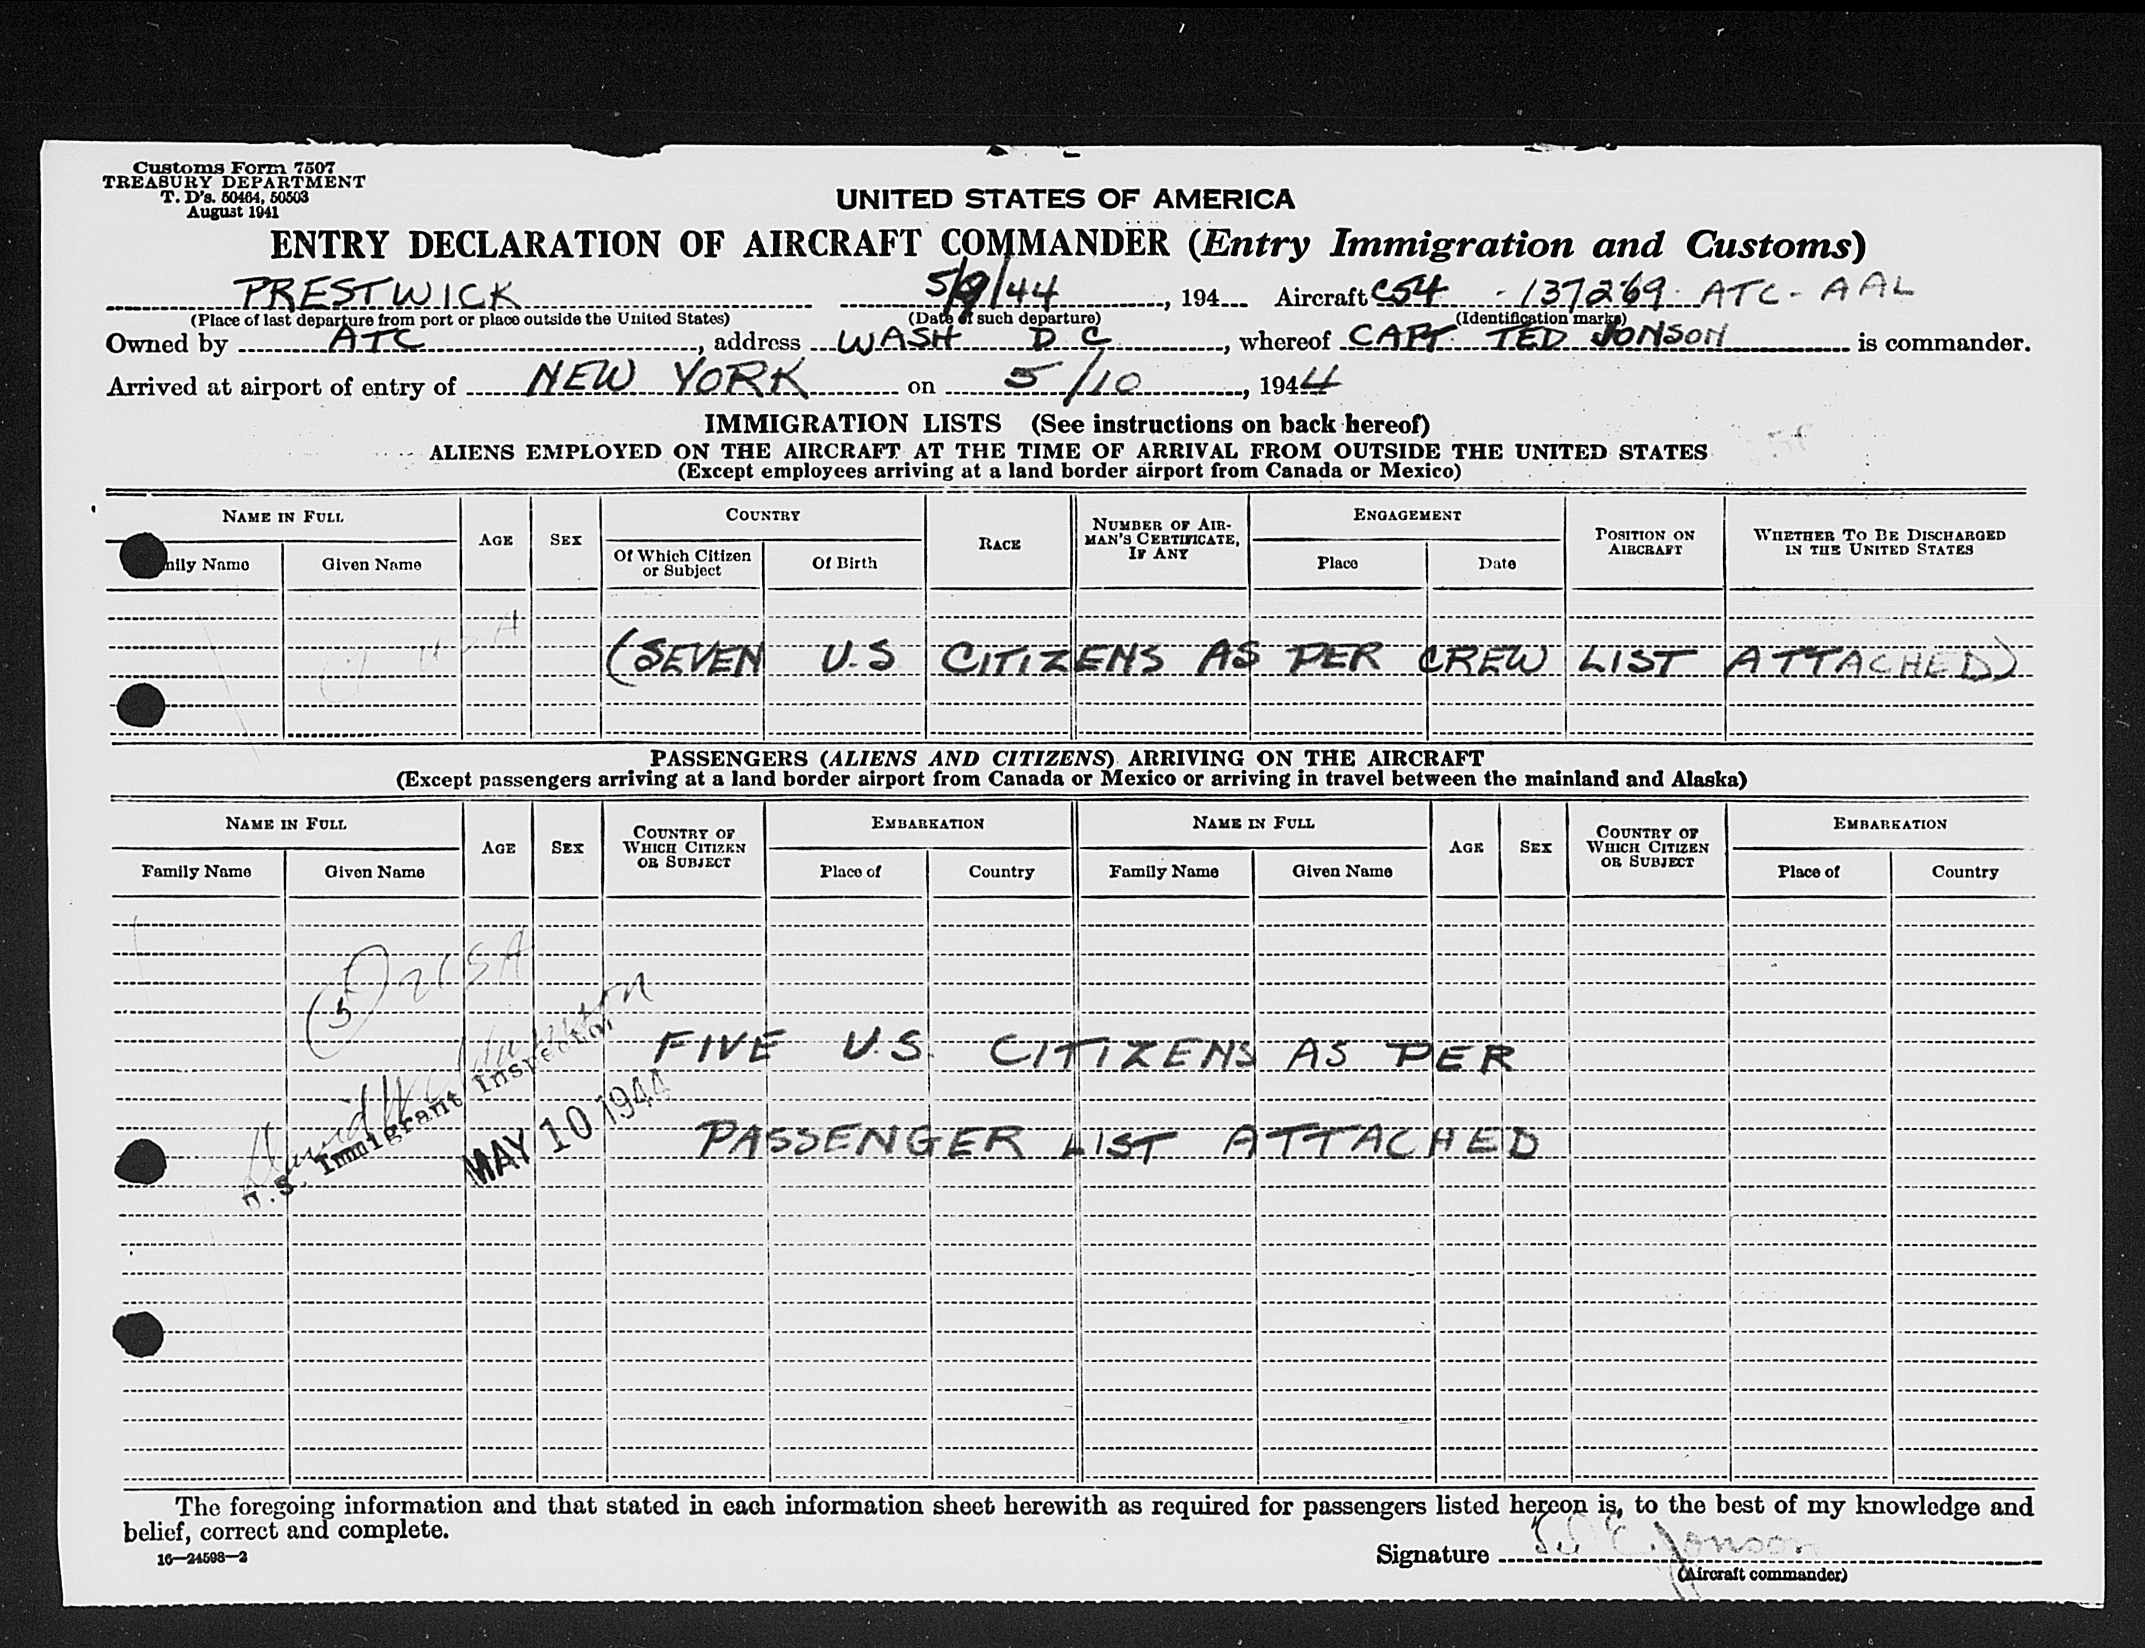 Customs Form 7507
TREASURY DEPARTMENT
T. D's. 50464, 50503
August 1941
UNITED STATES OF AMERICA
ENTRY DECLARATION OF AIRCRAFT COMMANDER (Entry Immigration and Customs)
PRESTWICK 5/9/44, 194 Aircraft C54 - 137269 ATC - AAL
(Place of last departure from port or place outside the United States) (Date of such departure) (Identification marks)
Owned by ATC, address WASH D C, whereof CAPT. TED JONSON is commander.
Arrived at airport of entry of NEW YORK on 5/10, 1944
IMMIGRATION LISTS (See instructions on back hereof)
ALIENS EMPLOYED ON THE AIRCRAFT AT THE TIME OF ARRIVAL FROM OUTSIDE THE UNITED STATES
(Except employees arriving at a land border airport from Canada or Mexico)
NAME IN FULL AGE SEX COUNTRY RACE NUMBER OF AIRMAN'S CERTIFICATE, IF ANY ENGAGEMENT POSITION ON AIRCRAFT WHETHER TO BE DISCHARGED IN THE UNITED STATES
Name Given Name Of Which Citizen or Subject Of Birth Place Date
(SEVEN U.S CITIZENS AS PER CREW LIST ATTACHED)
PASSENGERS (ALIENS AND CITIZENS) ARRIVING ON THE AIRCRAFT
(Except passengers arriving at a land border airport from Canada or Mexico or arriving in travel between the mainland and Alaska)
NAME IN FULL AGE SEX COUNTRY OF WHICH CITIZEN OR SUBJECT EMBARKATION NAME IN FULL AGE SEX COUNTRY OF WHICH CITIZEN OR SUBJECT EMBARKATION
Family Name Given Name Place of Country Family Name Given Name Place of Country
5 USA
FIVE U.S. CITIZENS AS PER
U.S. Immigrant Inspector
MAY 10 1944
PASSENGER LIST ATTACHED
The foregoing information and that stated in each information sheet herewith as required for passengers listed hereon is, to the best of my knowledge and
belief, correct and complete.
16—24598—2
Signature E. Jonson
(Aircraft commander)